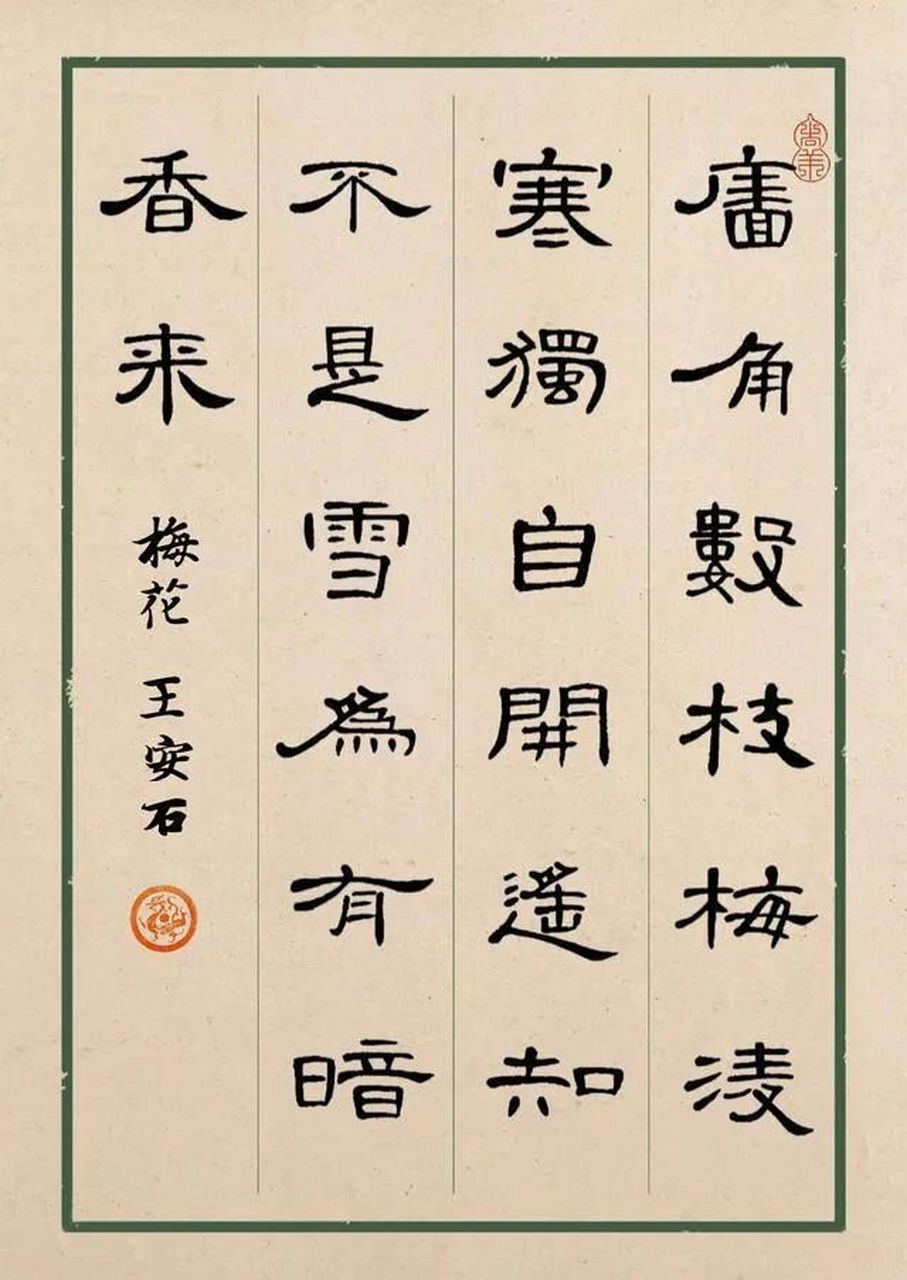 廧角數枝梅淩
寒獨自開遙知
不是雪為有暗
香来
梅花 王安石